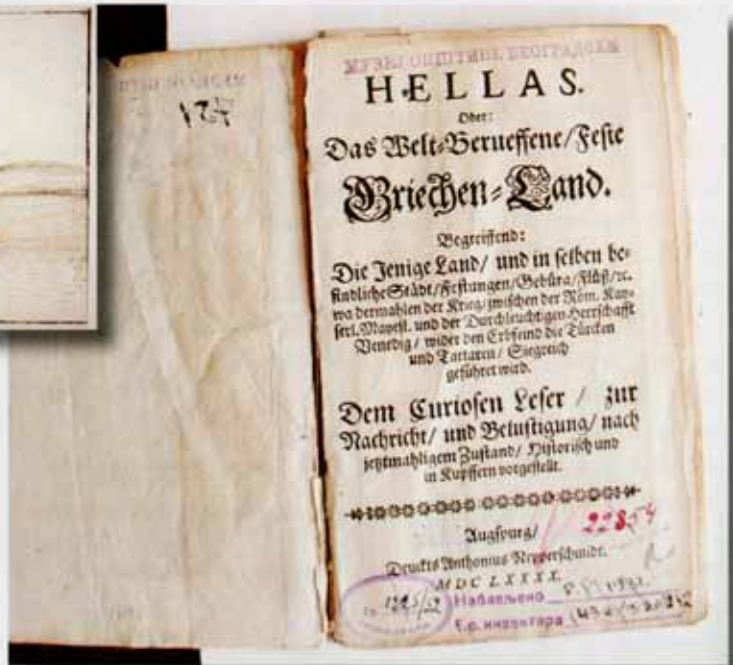 МУЗЕЈ ОПШТИНЕ БЕОГРАДСКЕ
HELLAS.
Oder:
Das Welt-Berueffene/Feste
Griechen-Land.
Begreiffend:
Die Jenige Land/ und in selben be-
findliche Städt/Festungen/Gebürg/Flüß/rc.
wa dermahlen der Krieg/zwischen der Röm. Kay-
serl. Mayest. und der Durchleuchtigen Herrschafft
Venedig/ wider den Erbfeind die Türcken
und Tartaren/ Siegreich
geführet wird.
Dem Curiosen Leser / zur
Nachricht/ und Belustigung/ nach
jetztmahligem Zustand/ Historisch und
in Kupffern vorgestellt.
22854
Augspurg/
Druckts Anthonius Nepperschmidt.
MDCLXXXX.
Набављено
Бр. инвентара